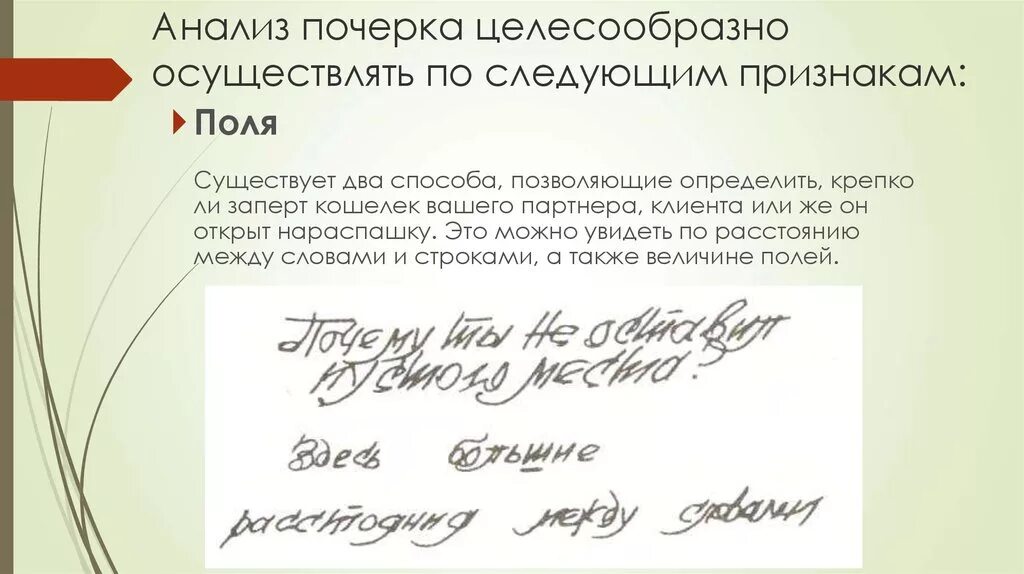 Анализ почерка целесообразно
осуществлять по следующим признакам:
Поля
Существует два способа, позволяющие определить, крепко
ли заперт кошелек вашего партнера, клиента или же он
открыт нараспашку. Это можно увидеть по расстоянию
между словами и строками, а также величине полей.
Почему ты не оставил
пустого места?
Здесь большие
расстояния между словами